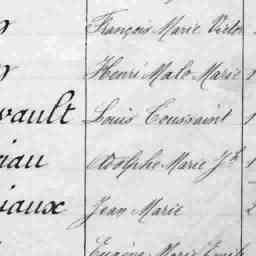 François Marie Victor
Henri Malo Marie
vault Louis Toussaint 1
iau Adolphe Marie Jh 1
iaux Jean Marie 2
Eugène Marie Emile